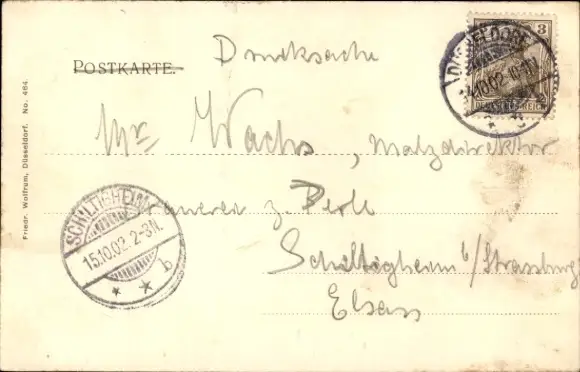 Drucksache
POSTKARTE.
3
DEUTSCHES REICH
DÜSSELDORF
14.10.02
Mr Wachs, Malzdirektor
Brauerei z. Perle
Schiltigheim b/Strassburg
Elsass
SCHILTIGHEIM
15.10.02. 2-3N.
b
Friedr. Wolfrum, Düsseldorf. No. 464.